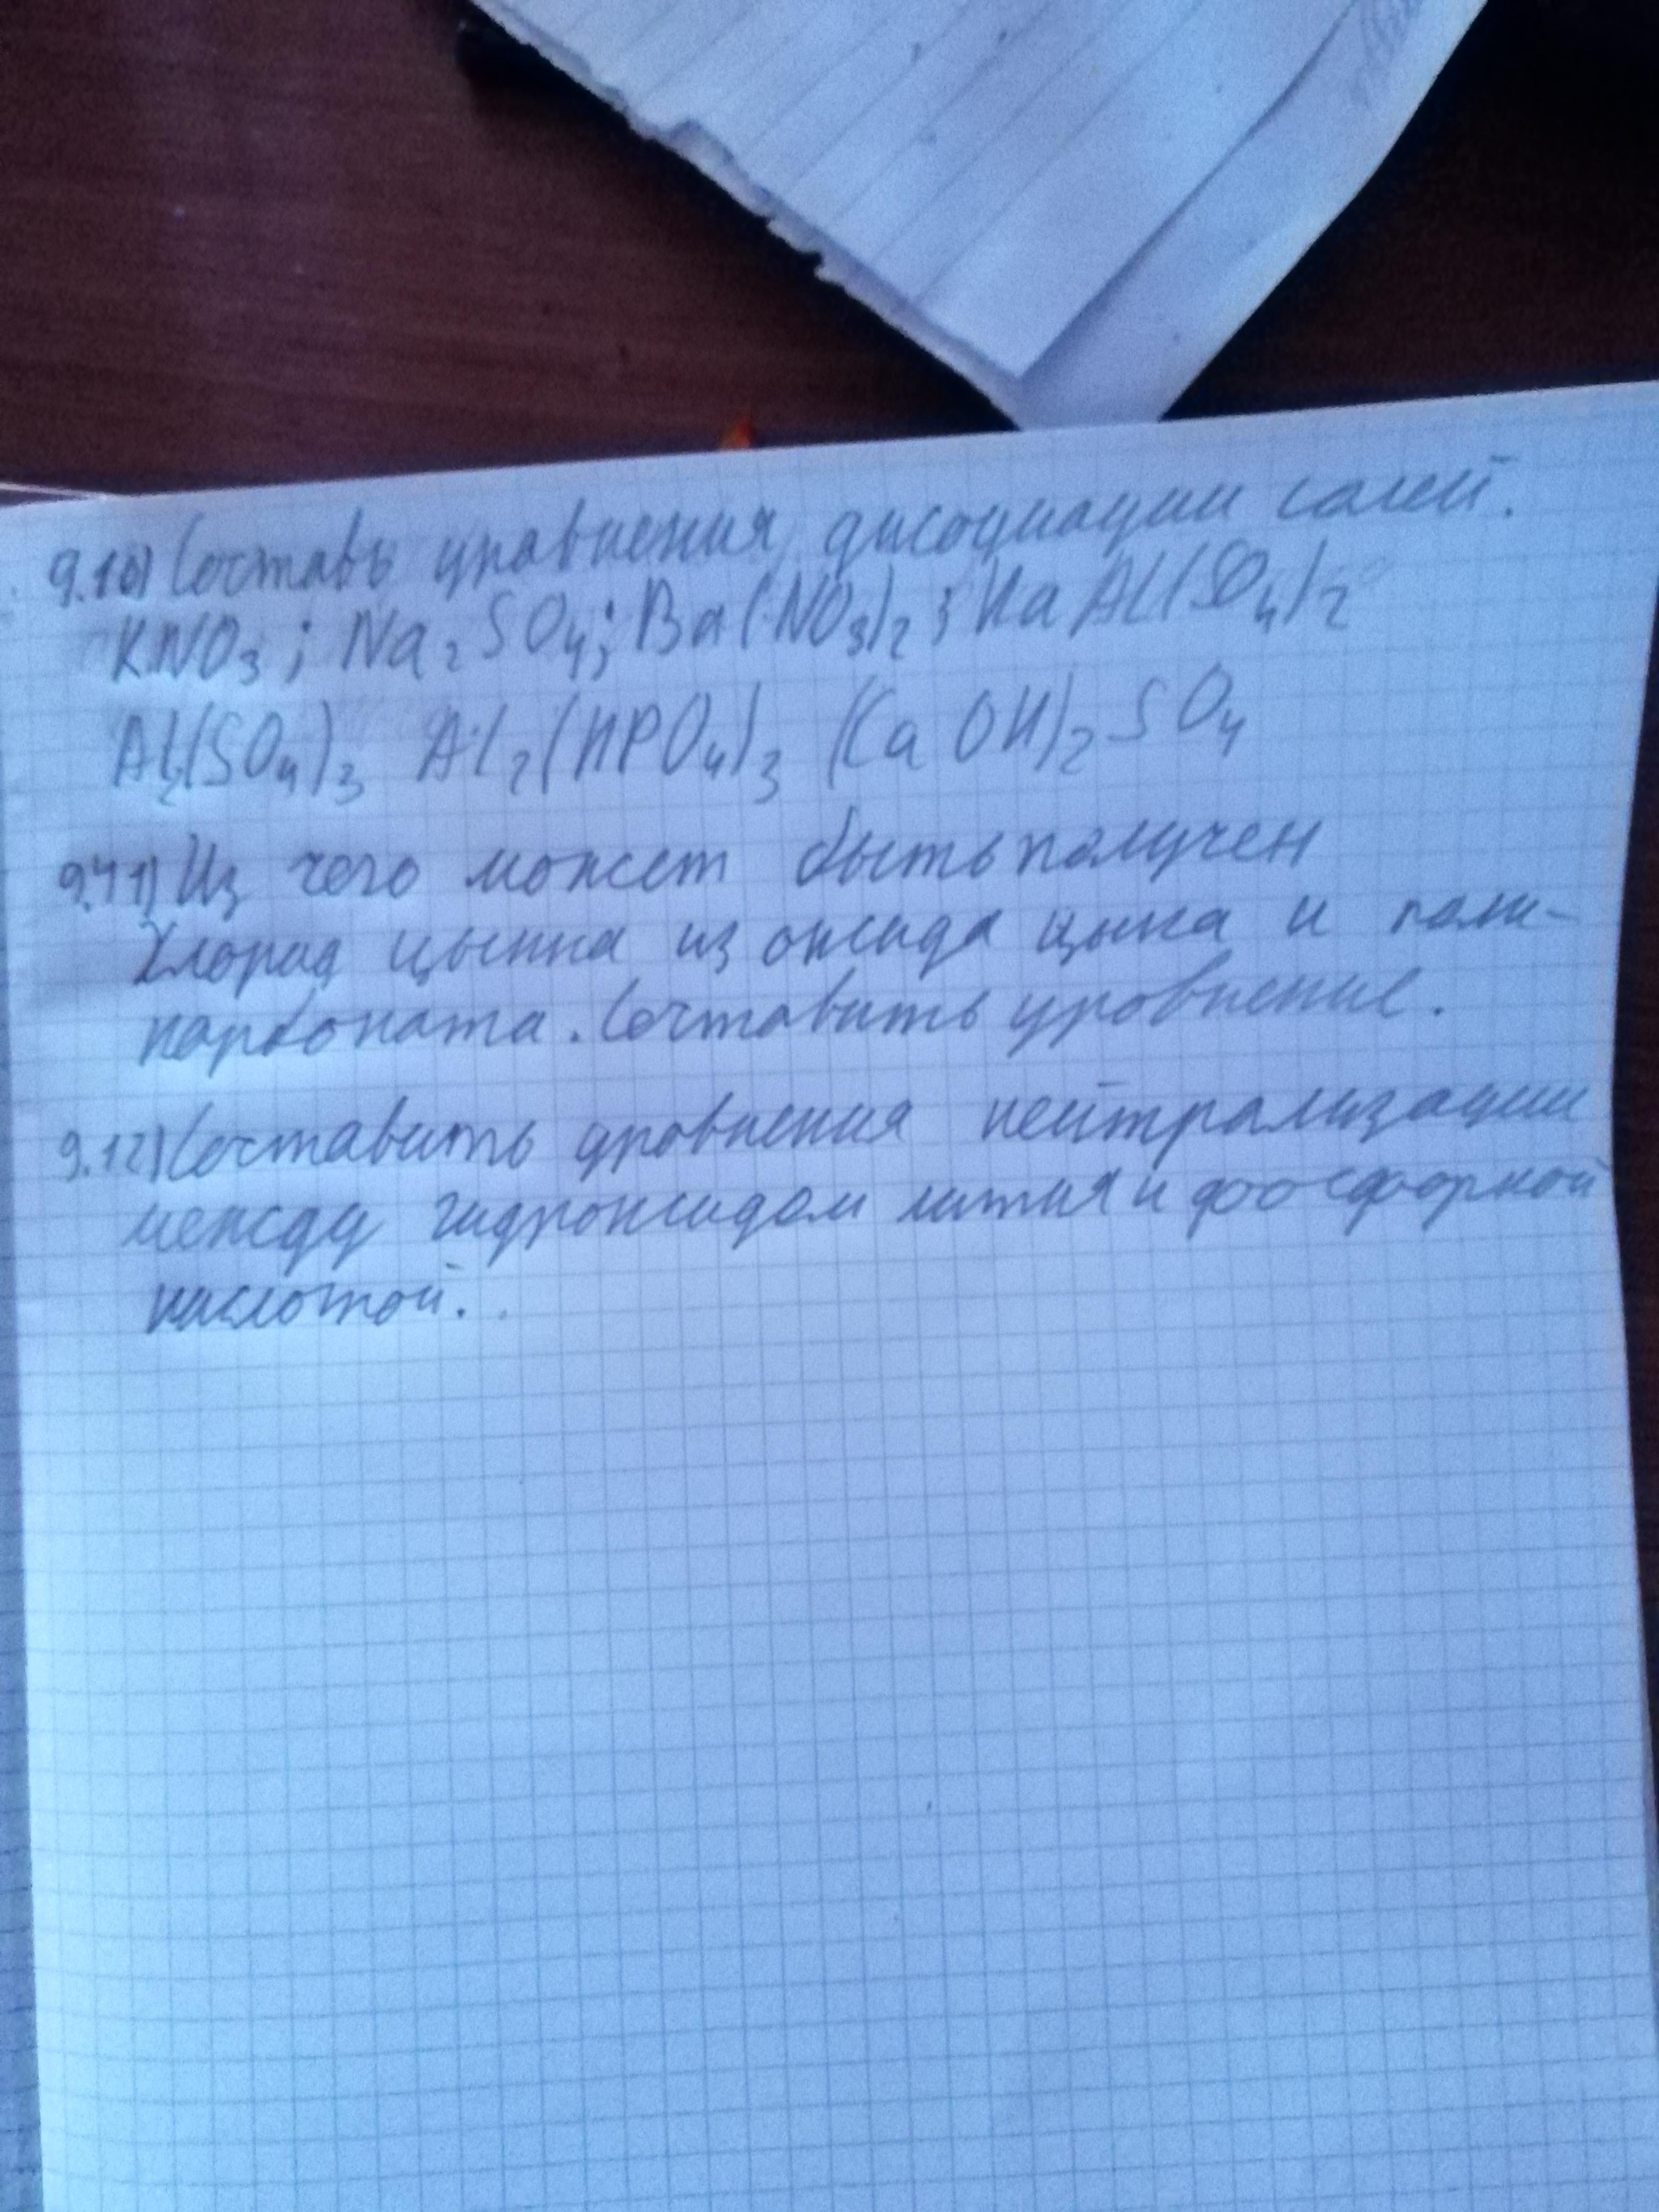 9.10) Составь уравнения дисоциации солей.
KNO3; Na2SO4; Ba(NO3)2; NaAl(SO4)2
Al2(SO4)3 Al2(HPO4)3 (CaOH)2SO4
9.11) Из чего может быть получен
хлорид цынка из оксида цынка и
карбоната. Составить уровнение.
9.12) Составить уровнения нейтрализации
между гидроксидом лития и фосфорной
кислотой.